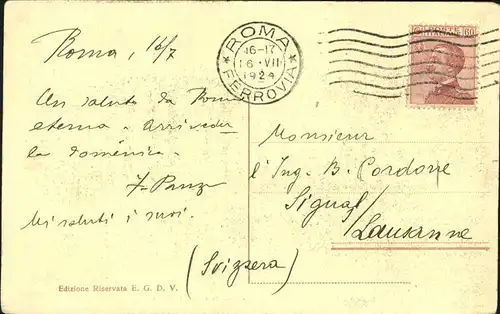 Roma, 16/7
ROMA
FERROVIA
16-17
16 · VII
1924
Un saluto da Roma
eterna. Arriveder
la domenica.
Mi saluti i suoi.
Monsieur
l'Ing. B. Cordone
Signal/
Lausanne
(Svizzera)
Edizione Riservata E. G. D. V.